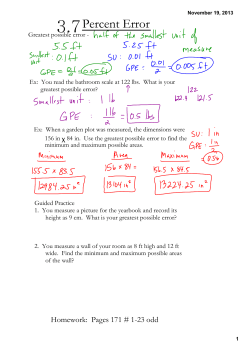 November 19, 2013
3.7 Percent Error
Greatest possible error - half of the smallest unit of measure
5.5 ft 5.25 ft
Smallest unit : 0.1 ft S.U: 0.01 ft
GPE = 0.1/2 = 0.05 ft GPE: 0.01/2 = 0.005 ft
Ex: You read the bathroom scale at 122 lbs. What is your
greatest possible error?
122
122.4 121.5
Smallest unit : 1 lb
GPE : 1 lb/2 = 0.5 lbs
Ex: When a garden plot was measured, the dimensions were
156 in x 84 in. Use the greatest possible error to find the
minimum and maximum possible areas.
SU: 1 in
GPE: 1 in/2
0.5in
Minimum Area Maximum
155.5 x 83.5 156 x 84 = 156.5 x 84.5
12984.25 in² 13104 in² 13224.25 in²
Guided Practice
1. You measure a picture for the yearbook and record its
height as 9 cm. What is your greatest possible error?
2. You measure a wall of your room as 8 ft high and 12 ft
wide. Find the minimum and maximum possible areas
of the wall?
Homework: Pages 171 # 1-23 odd
1